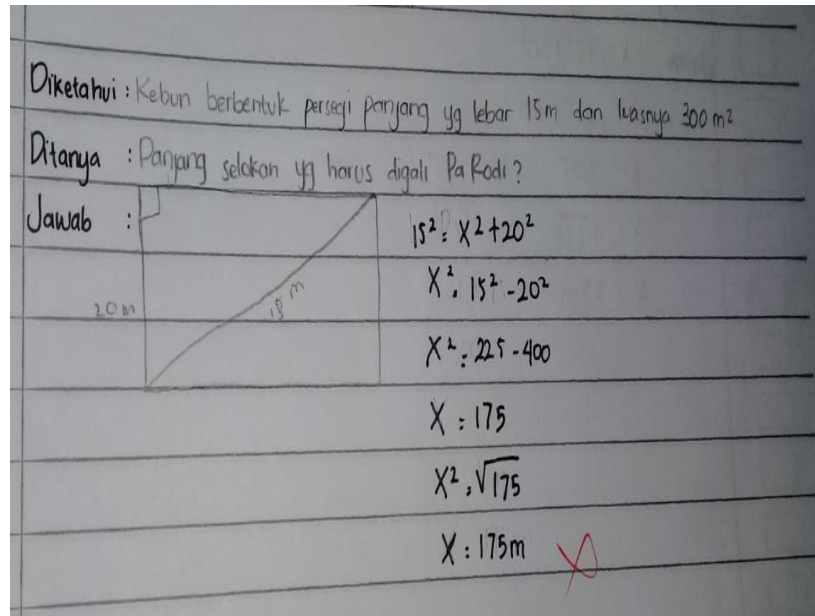 Diketahui : Kebun berbentuk persegi panjang yg lebar 15m dan luasnya 300 m²
Ditanya : Panjang selokan yg harus digali Pa Rodi?
Jawab :
20 m
15 m
15² = X² + 20²
X² = 15² - 20²
X² = 225 - 400
X = 175
X² = √175
X = 175m